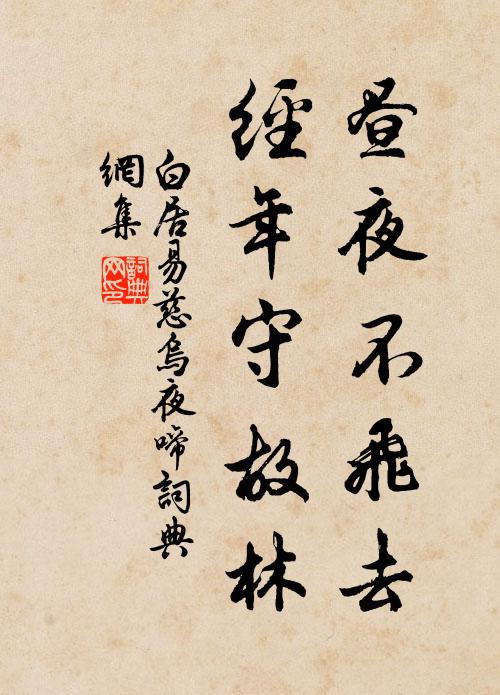 昼夜不飛去
經年守故林
白居易慈烏夜啼詞典
網集
詞典
网印